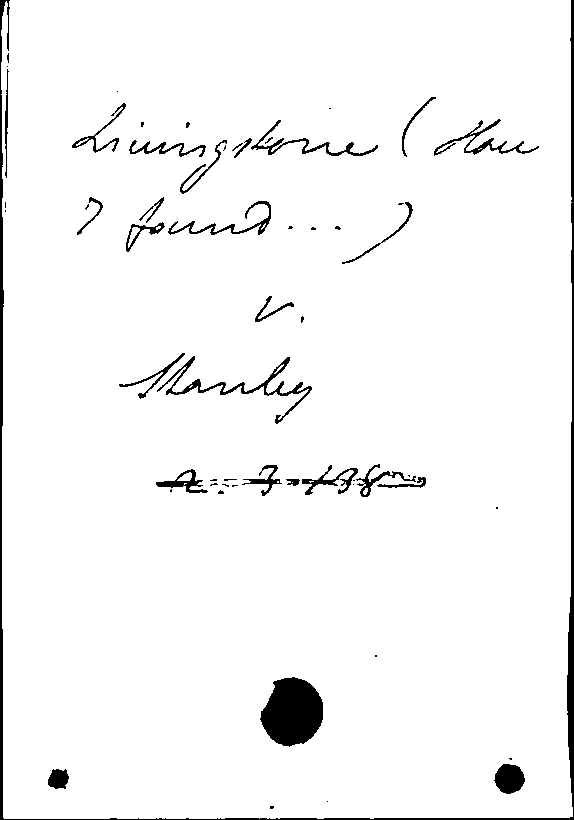 Livingstone (How
I found...)
v.
Stanley